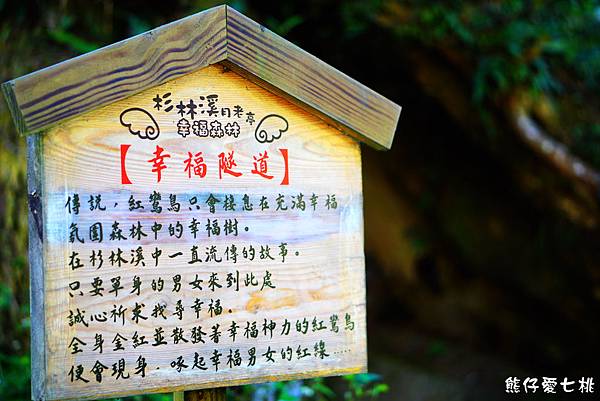 杉林溪月老亭
幸福森林
【幸福隧道】
傳說，紅鸞鳥只會棲息在充滿幸福
氛圍森林中的幸福樹。
在杉林溪中一直流傳的故事。
只要單身的男女來到此處
誠心祈求找尋幸福。
全身金紅並散發著幸福神力的紅鸞鳥
便會現身．啄起幸福男女的紅線……
熊仔愛七桃